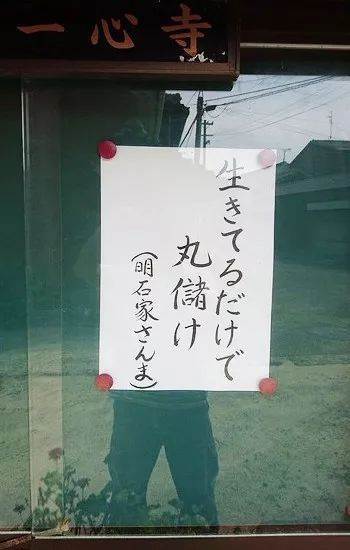 一心寺
生きてるだけで
丸儲け
(明石家さんま)